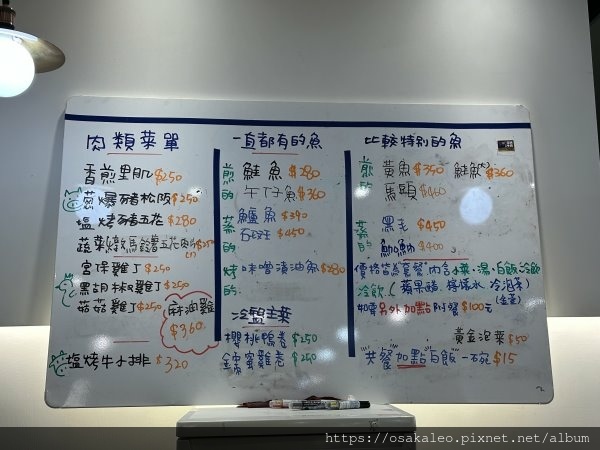 肉類菜單
香煎里肌 $250
蔥爆豬松阪 $250
塩烤豬五花 $280
蔬菜嫩馬鈴薯五花肉 $250
宮保雞丁 $250
黑胡椒雞丁 $250
菇菇雞丁 $250
麻油雞
$360
塩烤牛小排 $320
一直都有的魚
煎的
鮭魚 $280
午仔魚 $360
蒸的
鱸魚 $390
石斑 $450
烤的
味噌漬油魚 $280
冷盤主菜
櫻桃鴨卷 $250
蜜雞卷 $250
比較特別的魚
煎的
黃魚 $350 鮭魚 $360
馬頭 $460
蒸的
黑毛 $450
$400
價格皆為套餐 內含小菜、湯、白飯、冷飲
冷飲(蘋果醋、檸檬水、冷泡茶)
如需另外加點附餐 $100元
黃金泡菜 $50
共餐加點白飯一碗 $15
https://osakaleo.pixnet.net/album